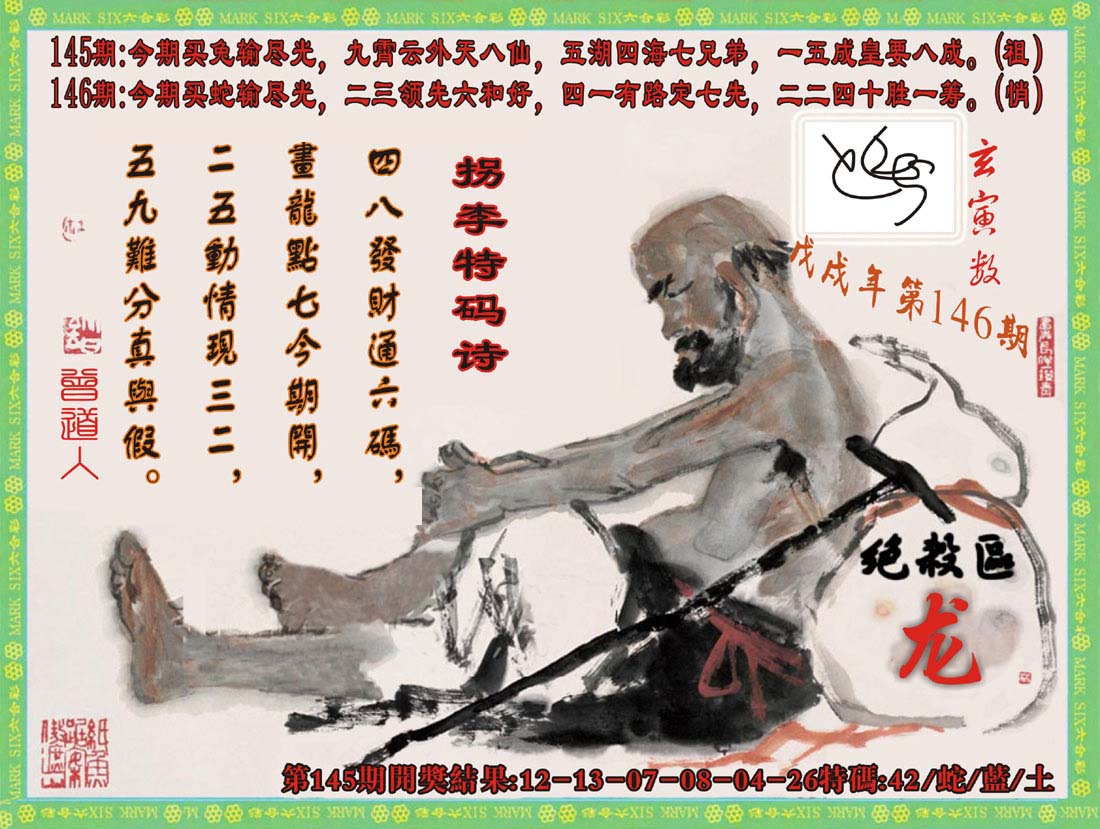 MARK SIX六合彩 MARK SIX六合彩 MARK SIX六合彩 MARK SIX六合彩 MARK SIX六合彩 MARK SIX六合彩
145期:今期买兔输尽光，九霄云外天八仙，五湖四海七兄弟，一五成皇要八成。(祖)
146期:今期买蛇输尽光，二三领先六和好，四一有路定七先，二二四十胜一筹。(悄)
玄寅数
戊戌年第146期
拐李特码诗
四八發財通六碼，
畫龍點七今期開，
二五動情現三二，
五九難分真與假。
曾道人
绝殺區
龙
第145期開獎結果:12-13-07-08-04-26特碼:42/蛇/藍/土